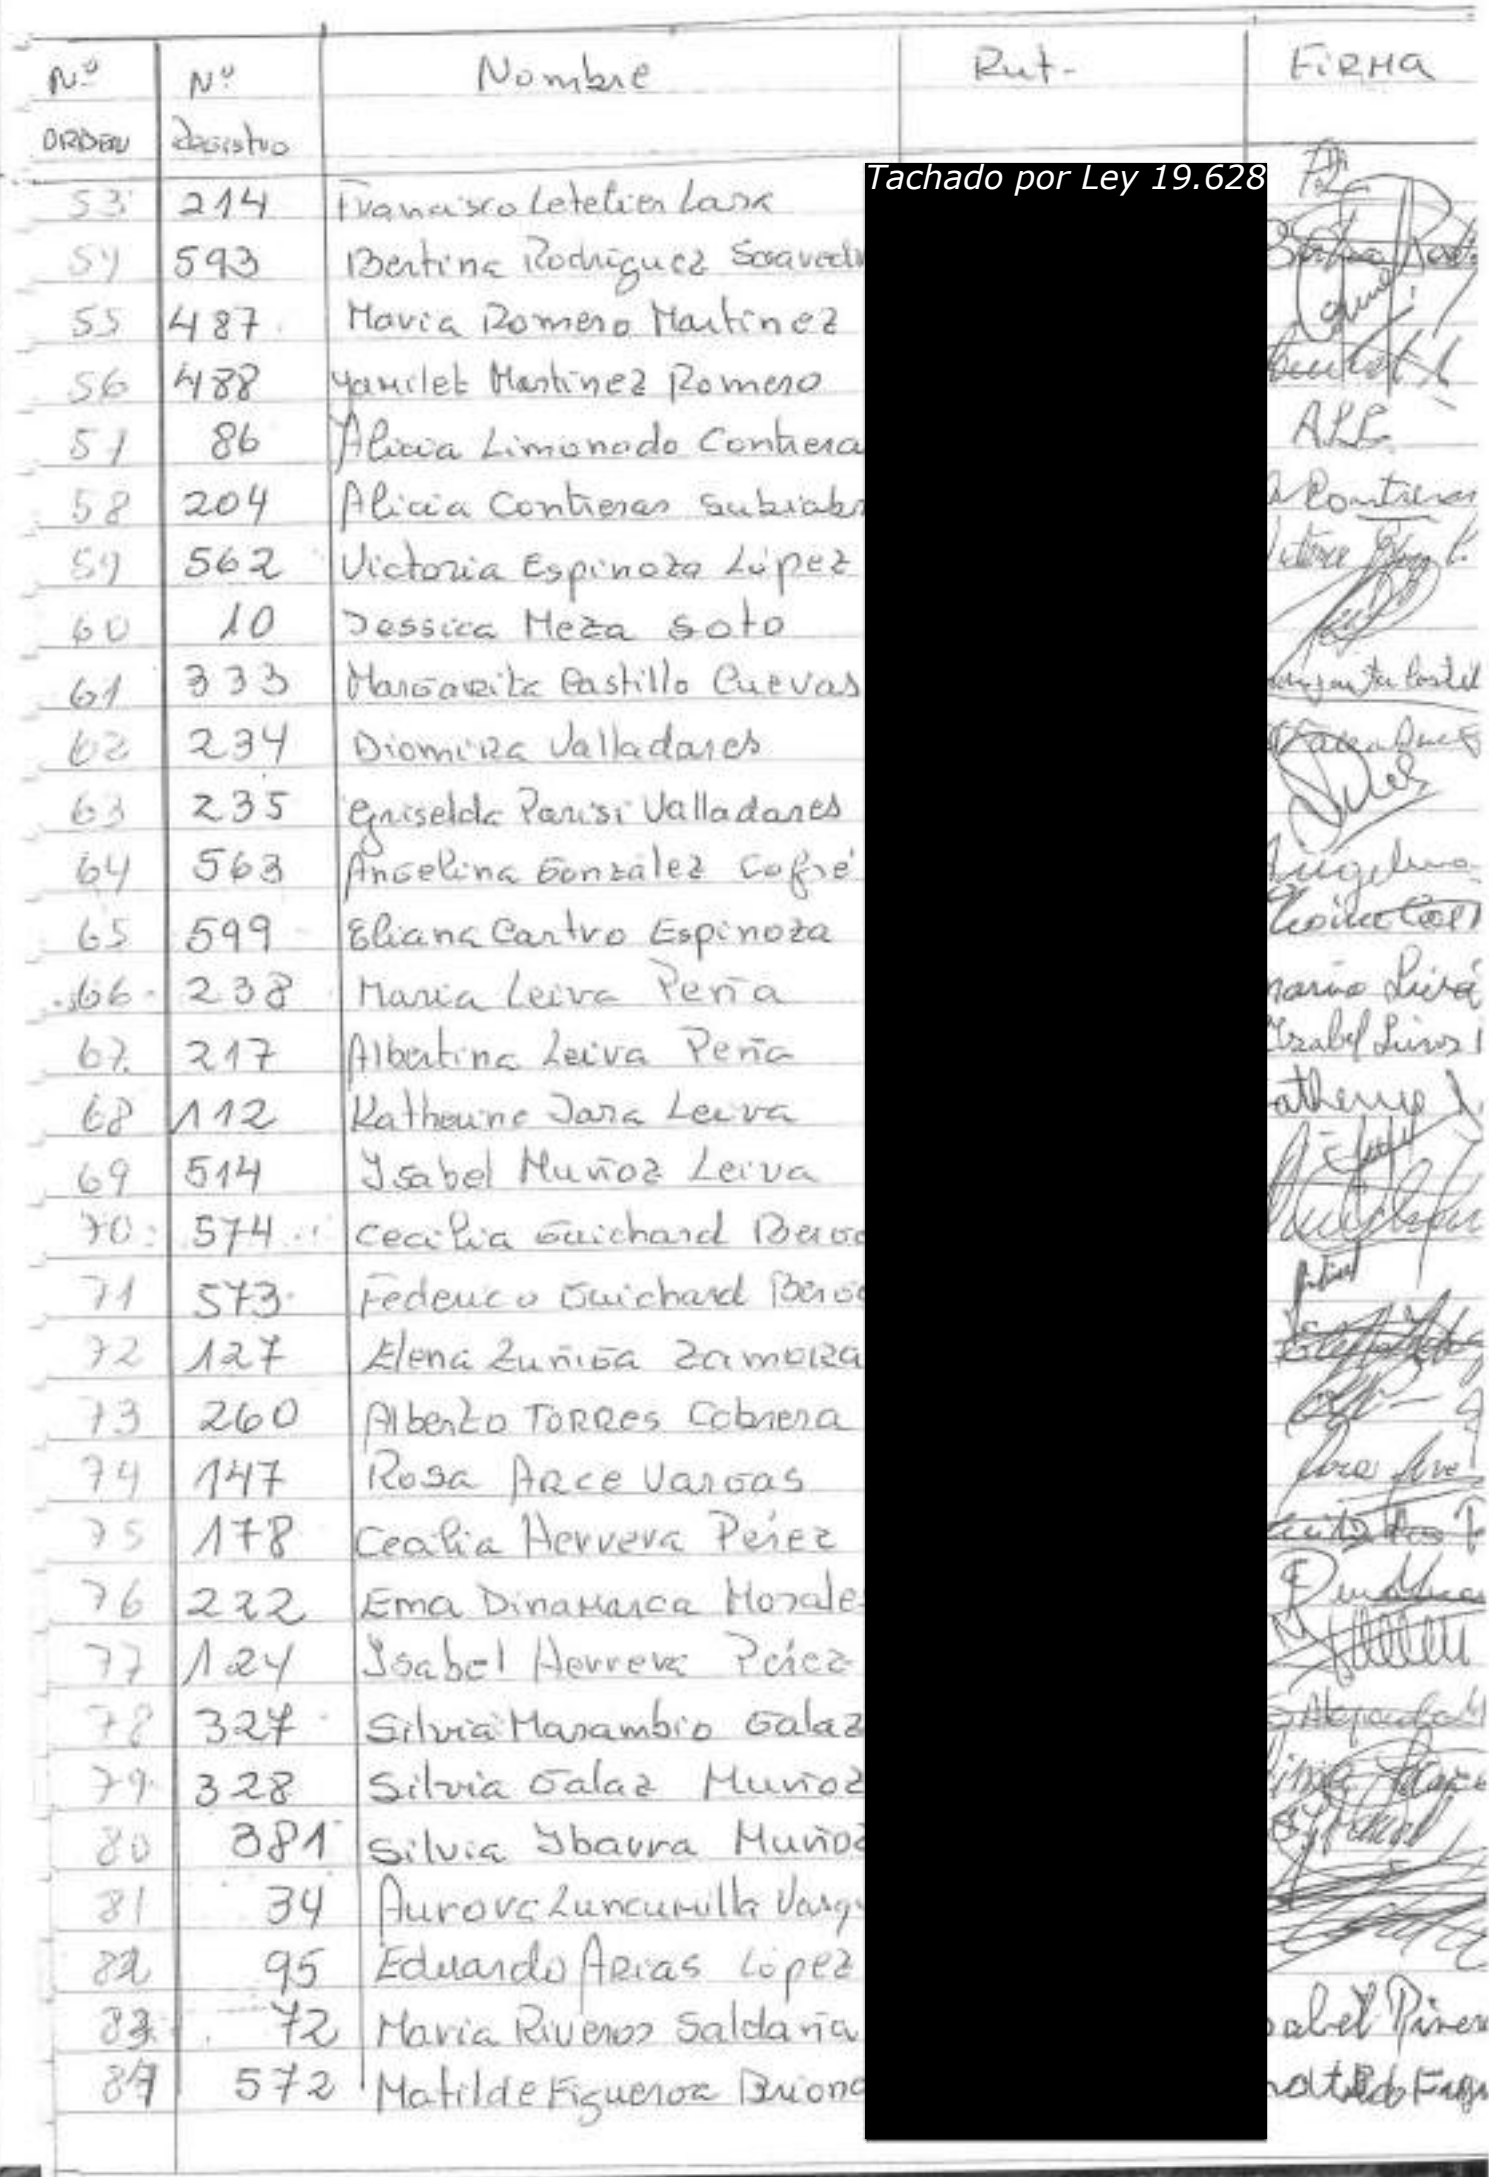 Nº Nº Nombre Rut- FIRMA
ORDEN Registro
Tachado por Ley 19.628
53 214 Francisco Letelier Lara
54 593 Bertina Rodriguez Saavedr
55 487 Maria Romero Martinez
56 488 Yamilet Martinez Romero
57 86 Alicia Limonado Contrera A.L.C.
58 204 Alicia Contreras Subiabr A Contreras
59 562 Victoria Espinoza López
60 10 Jessica Meza Soto
61 333 Margarita Castillo Cuevas
62 234 Diomira Valladares
63 235 Griselda Parisi Valladares
64 563 Angelina González Cofré Angelina
65 599 Eliana Castro Espinoza
66 238 Maria Leiva Peña
67 217 Albertina Leiva Peña
68 112 Katherine Jara Leiva
69 514 Isabel Muñoz Leiva
70 574 Cecilia Guichard
71 573 Federico Guichard
72 127 Elena Zuñiga Zamora
73 260 Alberto Torres Cabrera
74 147 Rosa Arce Vargas
75 178 Cecilia Herrera Pérez
76 222 Ema Dinamarca Morales
77 124 Isabel Herrera Pérez
78 327 Silvia Marambio Galaz
79 328 Silvia Galaz Muñoz
80 381 Silvia Ybarra Muñoz
81 34 Aurora Luncumilla Vasqu
82 95 Eduardo Arias López
83 72 Maria Riveros Saldaña
84 572 Matilde Figueroa Brion